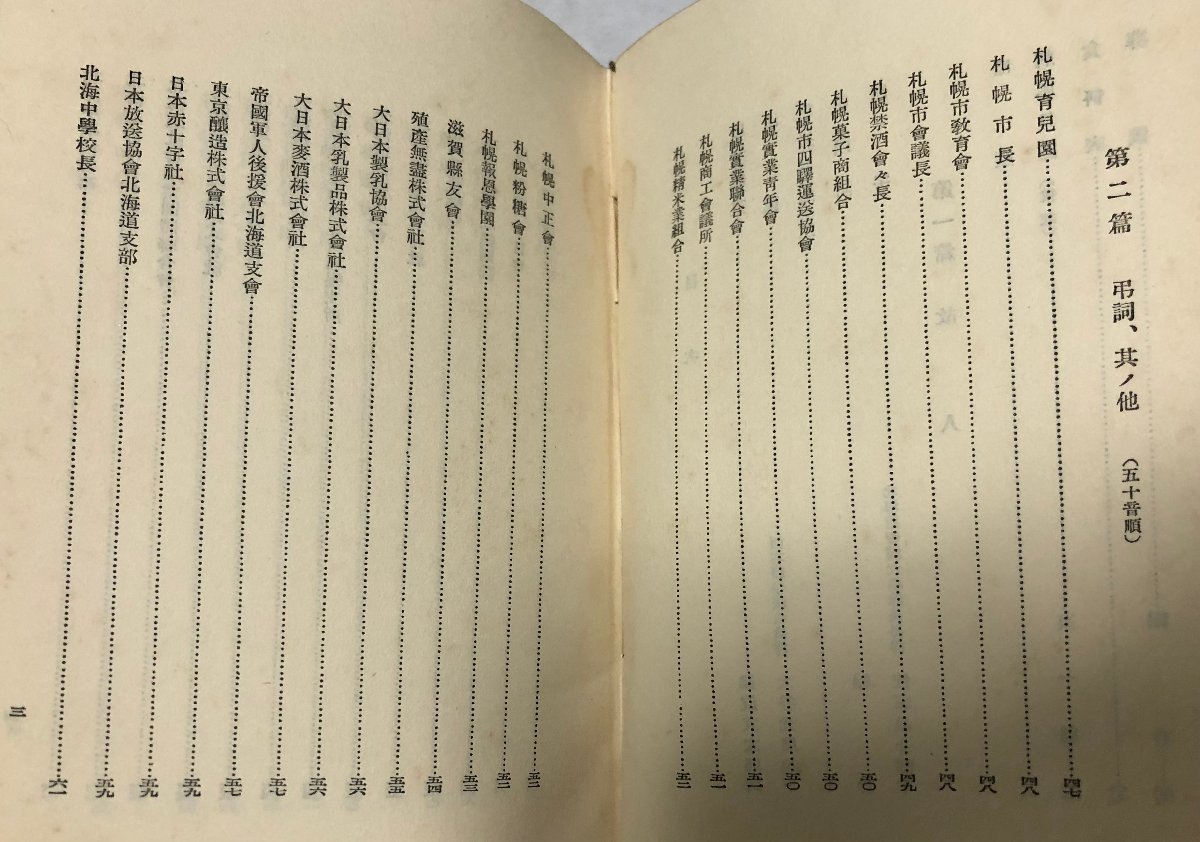 第二篇 弔詞、其ノ他 (五十音順)
札幌育兒園……四七
札幌市長……四八
札幌市敎育會……四八
札幌市會議長……四八
札幌禁酒會々長……四九
札幌菓子商組合……五〇
札幌市四驛運送協會……五〇
札幌實業靑年會……五〇
札幌實業聯合會……五一
札幌商工會議所……五一
札幌精米業組合……五二
札幌中正會……五二
札幌粉糖會……五二
札幌報恩學園……五三
滋賀縣友會……五四
殖產無盡株式會社……五五
大日本製乳協會……五六
大日本乳製品株式會社……五六
大日本麥酒株式會社……五七
帝國軍人後援會北海道支會……五七
東京釀造株式會社……五九
日本赤十字社……五九
日本放送協會北海道支部……五九
北海中學校長……六一
三